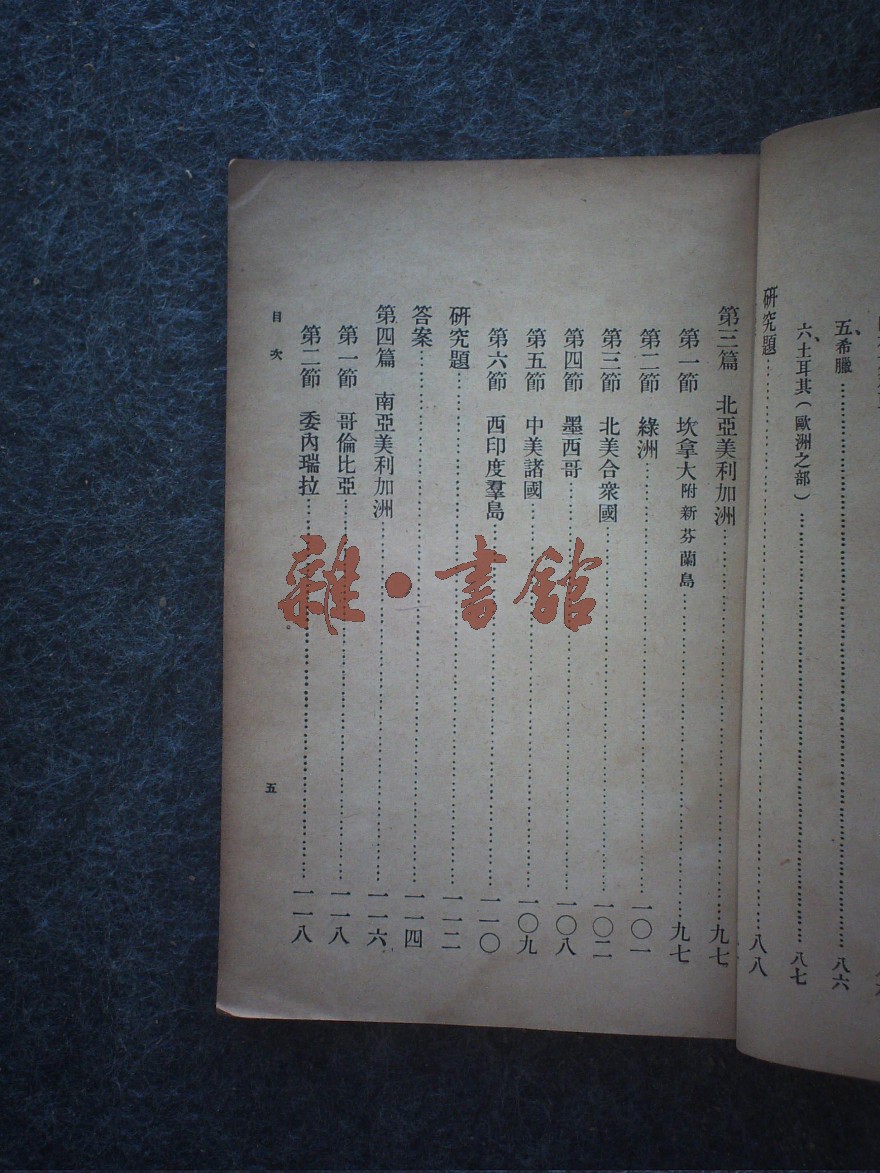 五、希臘……八六
六、土耳其（歐洲之部）……八七
研究題……八八
第三篇 北亞美利加洲……九七
第一節 坎拿大附新芬蘭島……九七
第二節 綠洲……一〇一
第三節 北美合衆國……一〇二
第四節 墨西哥……一〇八
第五節 中美諸國……一〇九
第六節 西印度羣島……一一〇
研究題……一一二
答案……一一四
第四篇 南亞美利加洲……一一六
第一節 哥倫比亞……一一八
第二節 委內瑞拉……一一八
目次
五
雜·書館